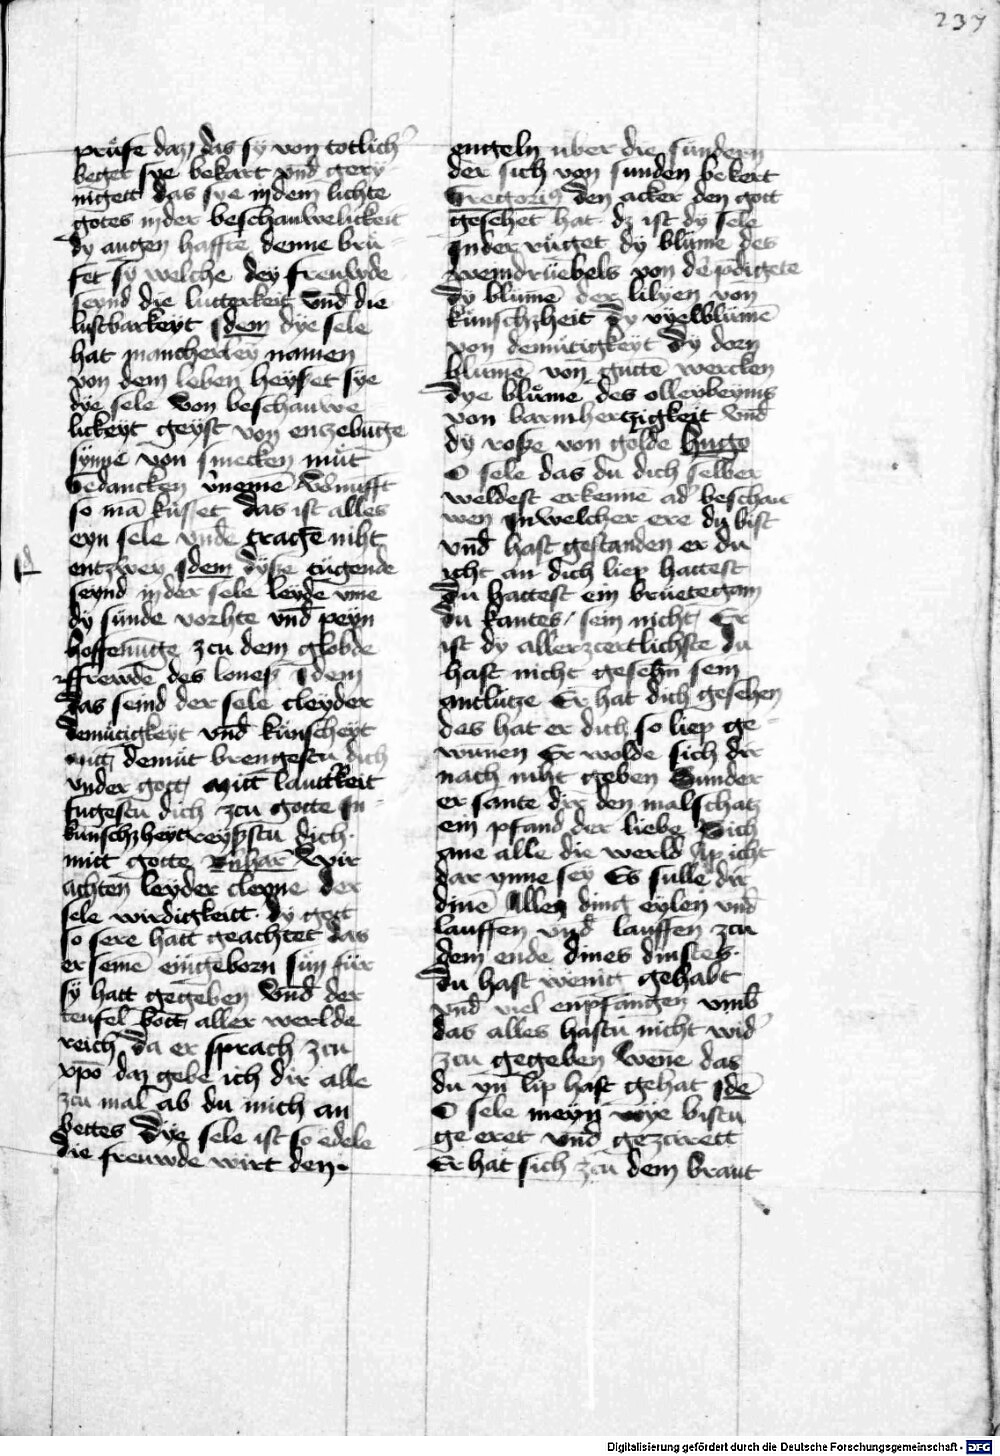 237
prüfe daz das sy von totlich'
beger sye bekart vnd gery
nigett das sye in dem lichte
gotes in der beschauwelickeit
dy augen haffte denne brü
fet sy welche dey freuwde
seynd die lutterkeit vnd die
lustbarkeyt Idem dye sele
hat mancherley namen
von dem leben heysset sye
dye sele von beschauwe
lickeyt geyst von entzebunge
synne von smecken müt
Bedancken vneme vornüfft
so mā küsset das ist alles
eyn sele vnde trachē niht
entzwey Idem dysse tügende
seynd in der sele leyde vme
dy sünde vorhte vnd peyn
hoffenunge zcu dem globde
ffrewde des lones Idem
das seind der sele cleyder
demütigkeyt vnd künscheyt
mitt demüt brengestu dich
vnder gott mitt lautkeit
fugestu dich zcu gotte In
künschzheyt reysstu dich
mitt gotte Wir
achten leyder cleyne der
sele wirdigkeitt dy gott
so sere hatt geachtet das
er seinē eingeborn sün für
sy hatt gegeben vnd der
teufel bott aller werlde
reich da er sprach zcu
xpo daz gebe ich dir alle
zcu mal ab du mich an
bettes Dye sele ist so edele
die freuwde wirt den
engeln uber die sündern
der sich von sunden bekert
Gregorius den acker den gott
gesehet hat dz ist dy sele
In der rüget dy blüme des
weindrüebels von
dy blumē der lilyen von
künschzheit dy vyelblümē
von demütigkeyt dy dorn
blumē von gutē wercken
dye blüme des olleybeyms
von barmhertzigkeit vnd
dy rose von golde Hugo
O sele das du dich selber
weldest erkenne ad' beschau
wen In welcher ere du bist
vnd hast gestanden er du
icht an dich liep hattest
du hattest ein brüetegam
du kantes sein nicht Er
ist dy allerzcertlichste du
hast nicht gesehn sein
antlutze Er hat dich gesehen
des hat er dich so liep ge
wunen Er wolde sich dir
nach niht geben Sunder
er sante dir den malschatz
ein pfand der liebe Sich
ane alle die werld ap icht
dar ynne sey Es sulle dir
dinē Allen ding eylen vnd
lauffen vnd lauffen zcu
dem ende dines dinstes
du hast wenig gehabt
vnd viel enpfangen vmb
das alles hastu nicht wid'
zcu gegeben wēne das
du yn lip hast gehat Idē
O sele meyn wye bistu
ge eret vnd gezciret
Er hat sich zcu dem braut
Digitalisierung gefördert durch die Deutsche Forschungsgemeinschaft - DFG